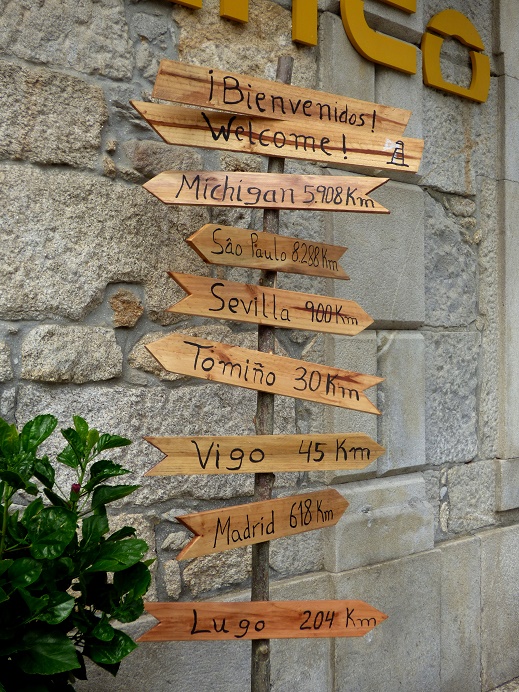 ¡Bienvenidos!
Welcome!
Michigan 5.908 Km
São Paulo 8.288 Km
Sevilla 900 Km
Tomiño 30 Km
Vigo 45 Km
Madrid 618 Km
Lugo 204 Km